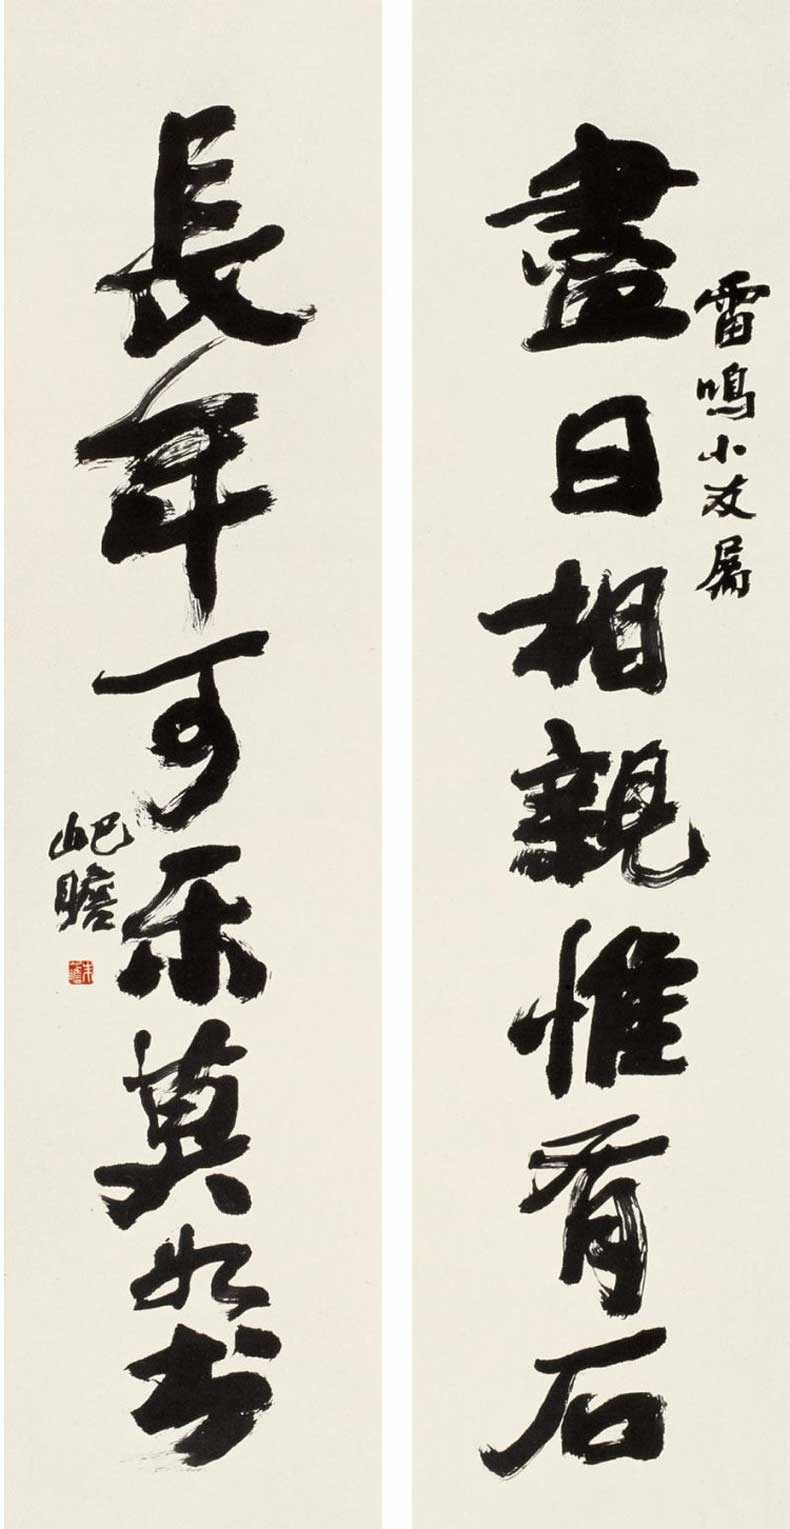 雷鳴小友屬
盡日相親惟有石
長年可樂莫如书
屺瞻
朱屺瞻